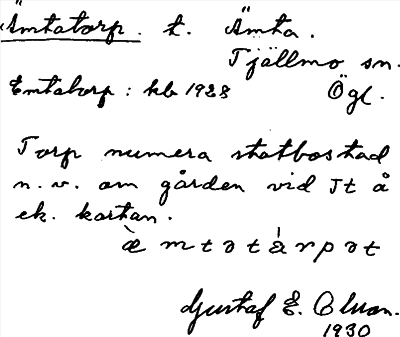 Ämtatorp. t. Ämta.
Tjällmo sn.
Emtatorp : kb 1928 Ögl.
Torp numera statbostad
n. v. om gården vid Tt å
ek. kartan.
æ̀ m t ə t å̀ r p ə t
Gustaf E. Olsson.
1930